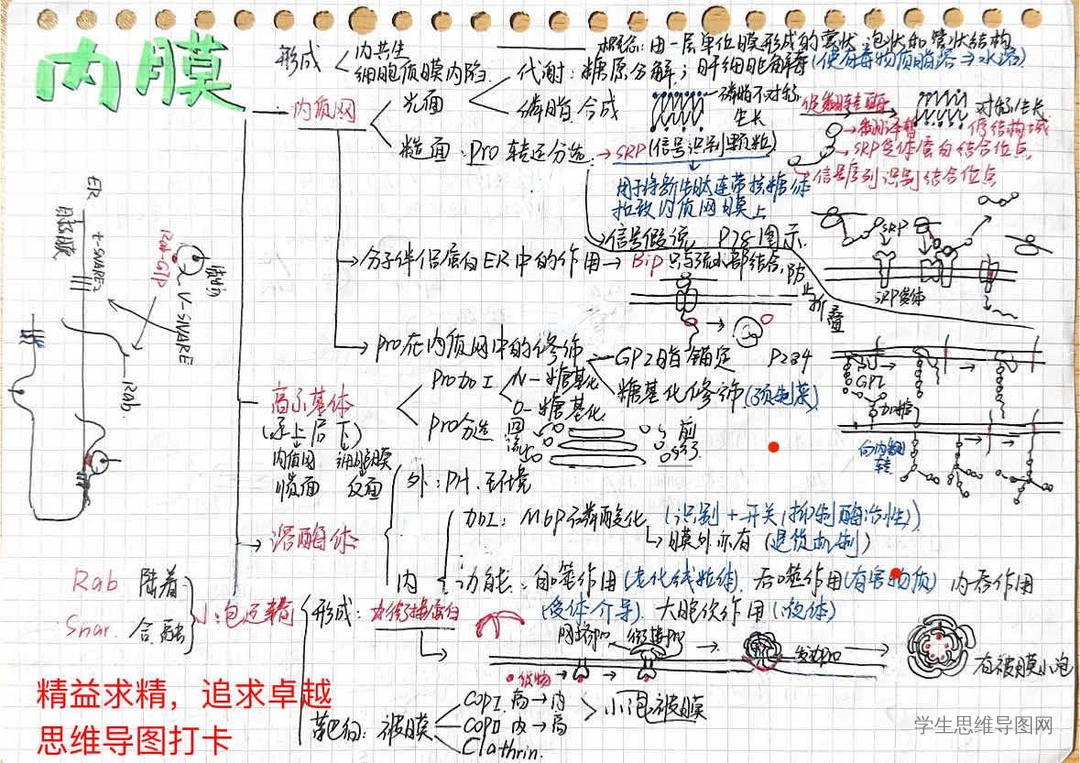 内膜
形成
内共生
细胞质膜内陷
概念：由一层单位膜形成的囊状、泡状和管状结构
内质网
光面
代谢：糖原分解；肝细胞解毒(使有毒物质脂溶→水溶)
磷脂合成
磷脂不对称生长
磷脂转位酶
对称生长
粗面：Pro 转运分选
→SRP(信号识别颗粒)
翻译暂停结构域
SRP受体蛋白结合位点
信号序列识别结合位点
用于将新生肽连带核糖体
拉致内质网膜上
信号假说 P781图示
SRP
SRP受体
分子伴侣蛋白ER中的作用→Bip只与疏水部结合,防止折叠
Pro在内质网中的修饰
GPI脂锚定 P234
糖基化修饰(预制菜)
GPI
加糖
向内翻转
高尔基体
(承上启下)
内质网
细胞膜
顺面
反面
Pro加工
N-糖基化
O-糖基化
Pro分选
回流
溶酶体
外：PH、环境
内
加工：M6P磷酸化(识别+开关,抑制酶活性)
膜外亦有(退货机制)
功能：自噬作用(老化线粒体) 吞噬作用(有害物质) 内吞作用
(受体介导) 大胞饮作用(液体)
小泡运输
Rab 附着
Snar. 合融
形成：
网格蛋白
货物
有被膜小泡
靶向：被膜
COPI 高→内
COPII 内→高
Clathrin.
小泡被膜
ER
t-SNARE
Rab-GTP
V-SNARE
Rab.
精益求精，追求卓越
思维导图打卡
学生思维导图网